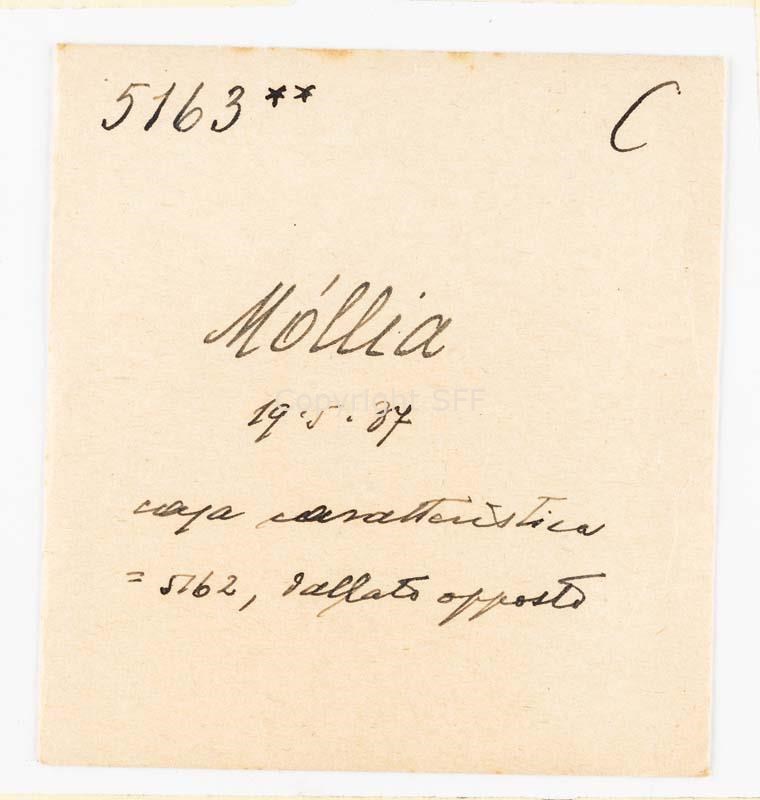 5163** C
Móllia
Copyright SFF
19.5.37
casa caratteristica
= 5162, dallato opposto